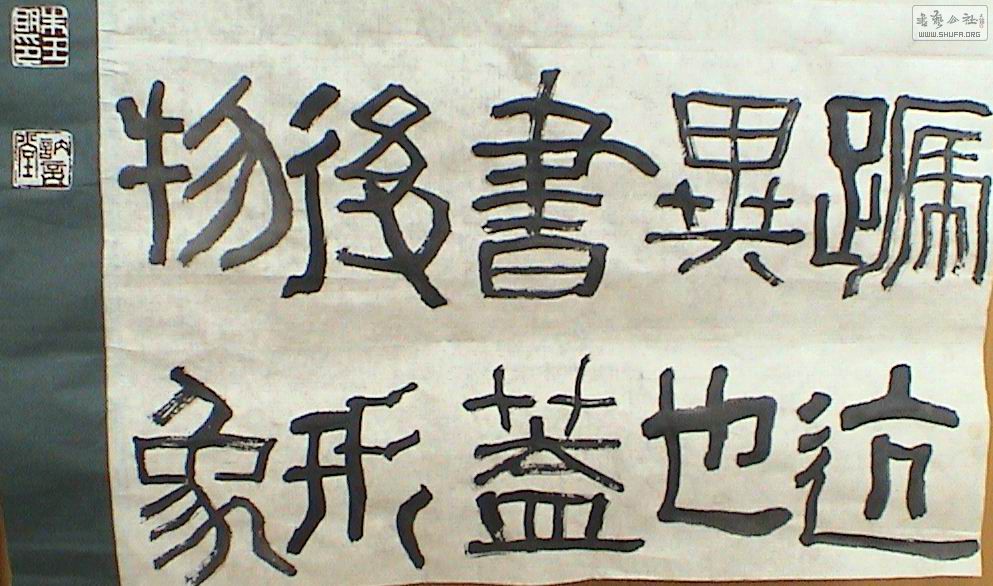 蹏迒
異也
書蓋
後形
物象
書藝公社
WWW.SHUFA.ORG